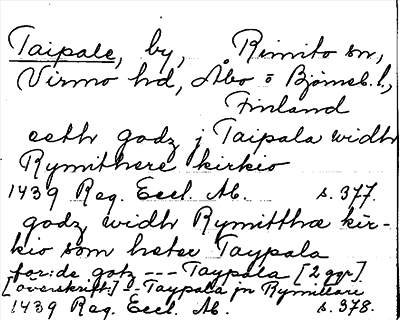 Taipale, by, Rimito sn,
Virmo hd, Åbo o Björneb. l.,
Finland
eeth godz j Taipala widh
Rymithere kirkio
1439 Reg. Eccl. Ab. s. 377.
godz widh Rymitthæ kir-
kio som heter Taypala
for:de gotz --- Taypala [2 ggr].
[överskrift:] -- Taypala jn Rymittare
1439 Reg. Eccl. Ab. s. 378.